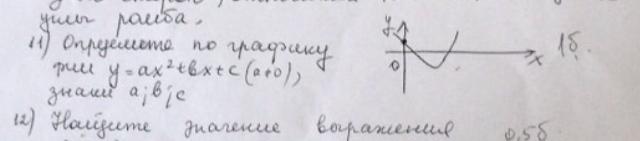 углы ромба.
11) Определите по графику
y
0
x
1б.
y=ax²+bx+c (a≠0),
знаки a; b; c
12) Найдите значение выражения 0,5б